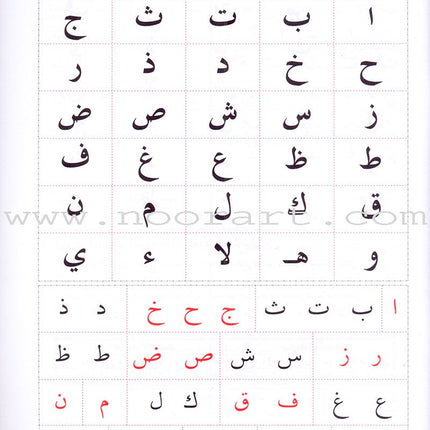 ا ب ت ث ج
ح خ د ذ ر
ز س ش ص ض
ط ظ ع غ ف
ق ك ل م ن
www.noorart.com
و هـ لا ء ي
ا ب ت ث ج ح خ د ذ
ر ز س ش ص ض ط ظ
ع غ ف ق ك ل م ن